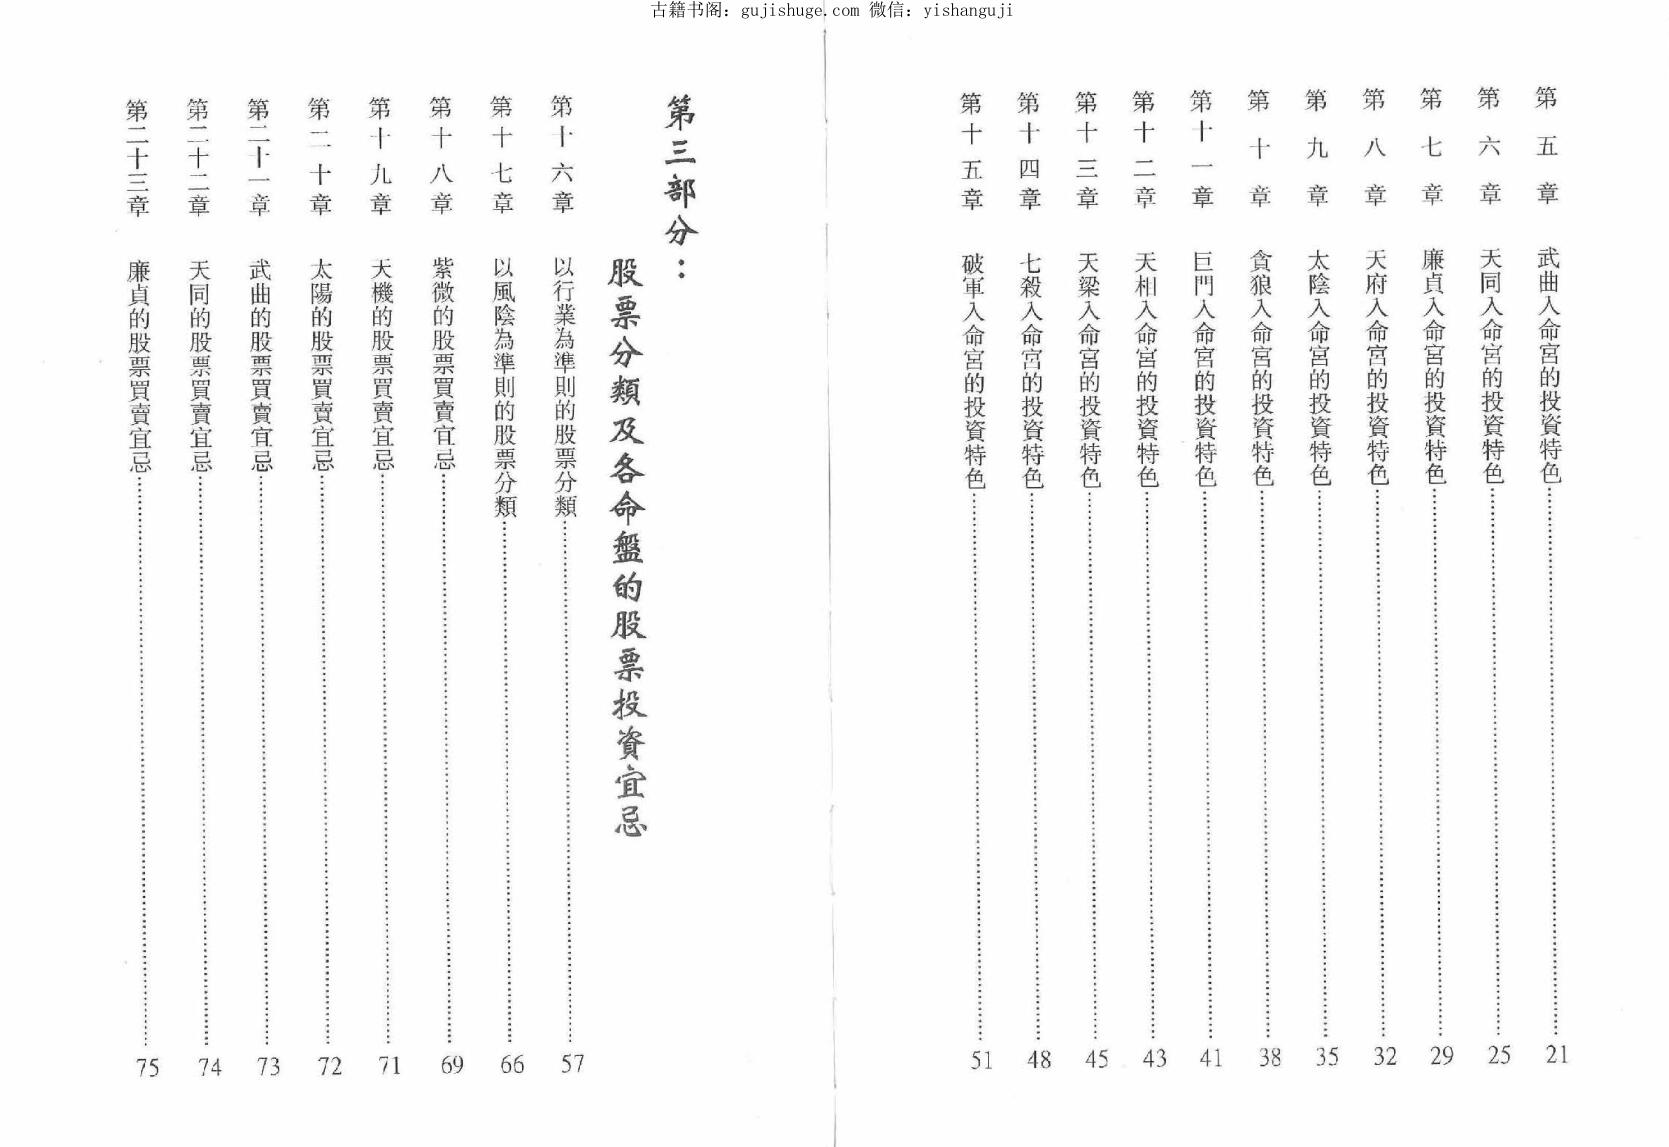 古籍书阁：gujishuge.com 微信：yishanguji
第五章 武曲入命宮的投資特色 21
第六章 天同入命宮的投資特色 25
第七章 廉貞入命宮的投資特色 29
第八章 天府入命宮的投資特色 32
第九章 太陰入命宮的投資特色 35
第十章 貪狼入命宮的投資特色 38
第十一章 巨門入命宮的投資特色 41
第十二章 天相入命宮的投資特色 43
第十三章 天梁入命宮的投資特色 45
第十四章 七殺入命宮的投資特色 48
第十五章 破軍入命宮的投資特色 51
第三部分：
股票分類及各命盤的股票投資宜忌
第十六章 以行業為準則的股票分類 57
第十七章 以風陰為準則的股票分類 66
第十八章 紫微的股票買賣宜忌 69
第十九章 天機的股票買賣宜忌 71
第二十章 太陽的股票買賣宜忌 72
第二十一章 武曲的股票買賣宜忌 73
第二十二章 天同的股票買賣宜忌 74
第二十三章 廉貞的股票買賣宜忌 75